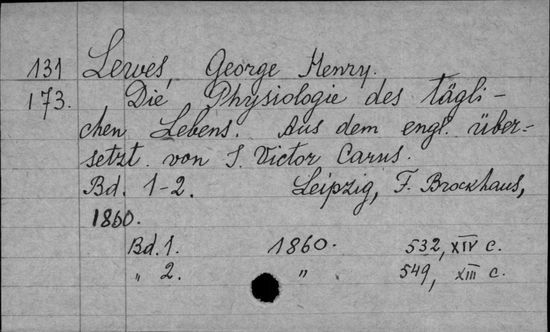 131 Lewes, George Henry.
173. Die Physiologie des tägli-
chen Lebens. Aus dem engl. über-
setzt von J. Victor Carus.
Bd. 1-2. Leipzig, F. Brockhaus,
1860.
Bd. 1. 1860. 532, XIV c.
„ 2. „ 549, XIII c.